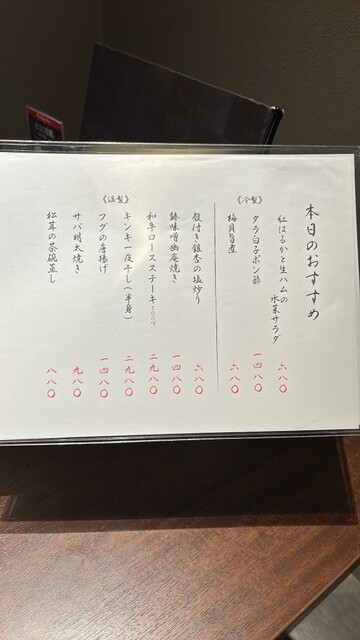 本日のおすすめ
《冷製》
紅はるかと生ハムの
水菜サラダ 六八〇
タラ白子ポン酢 一四八〇
梅貝旨煮 六八〇
《温製》
殻付き銀杏の塩炒り 六八〇
鰆味噌幽庵焼き 一四八〇
和牛ロースステーキ100g 二九八〇
キンキ一夜干し(半身) 二九八〇
フグの唐揚げ 一四八〇
サバ明太焼き 九八〇
松茸の茶碗蒸し 八八〇